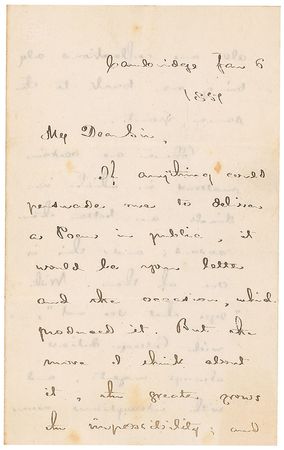 Cambridge Jan 6
1859
My Dear Sir,
If anything could
persuade me to deliver
a Poem in public, it
would be your letter
and the occasion, which
produced it. But the
more I think about
it, the greater grows
the impossibility; and